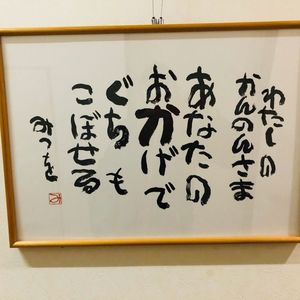 わたしの
かんのんさま
あなたの
おかげで
ぐちも
こぼせる
みつを